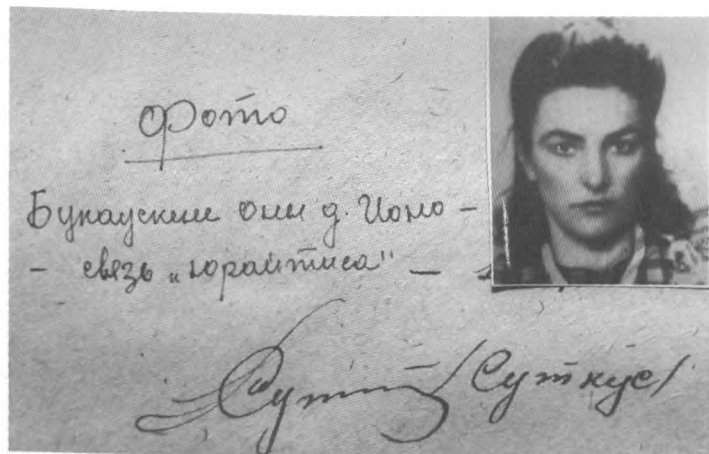 Фото
Букаускене они д. Ионо –
– связь „юрайтиса“ –
/Суткус/